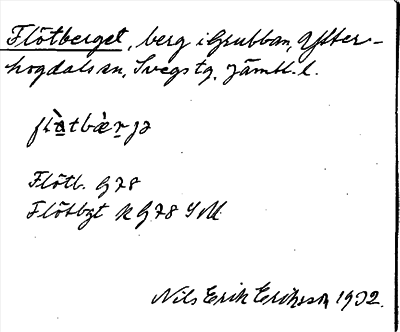 Flötberget, berg i Grubban, Ytter-
hogdals sn, Svegs tg, Jämtl. l.
flàtbæ̀rjə
Flötb. G78
Flötbgt K G78 SM
Nils Erik Eriksson 1932.